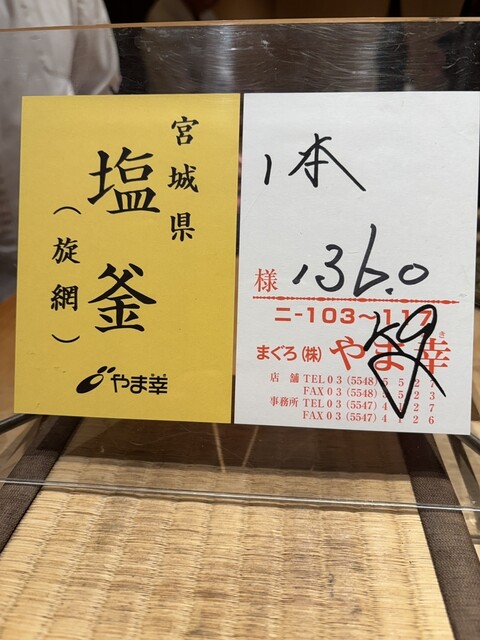 宮城県
塩釜
（旋網）
やま幸
1本
様 136.0
kg
ニ-103～117
まぐろ(株)やま幸
店舗 TEL03(5548)5527
FAX03(5548)5523
事務所 TEL03(5547)4127
FAX03(5547)4126